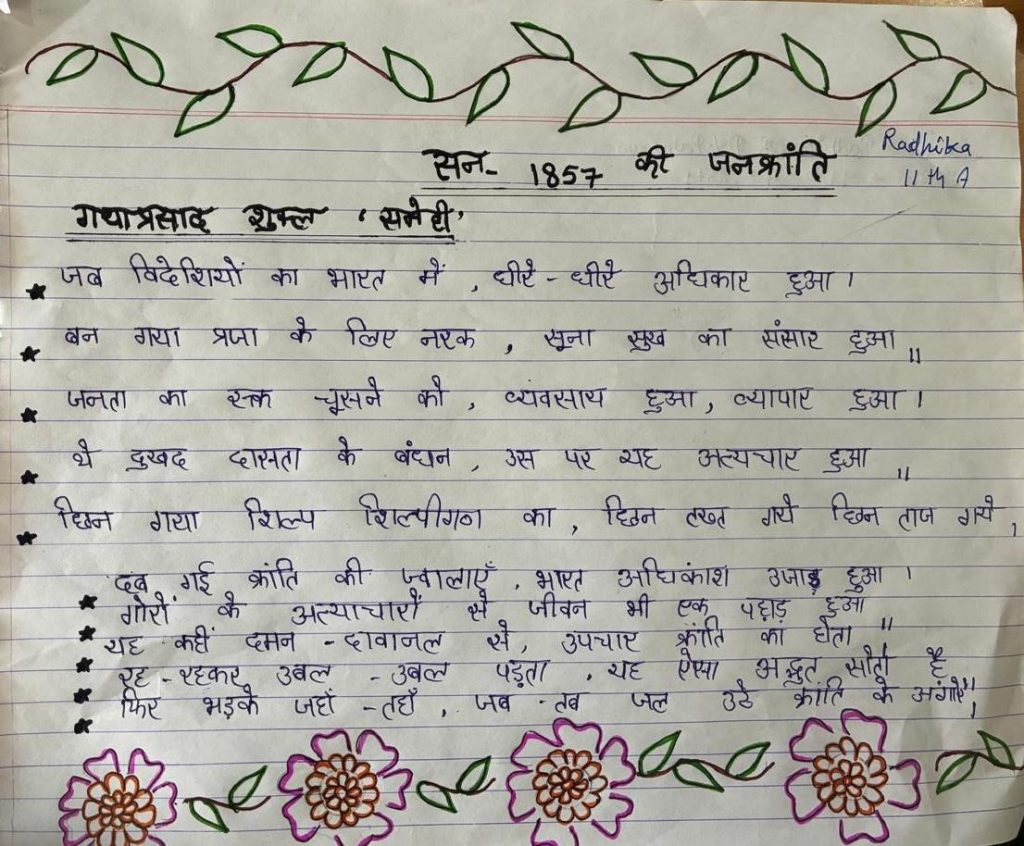 सन- 1857 की जनक्रांति
Radhika
11th A
गयाप्रसाद शुक्ल 'सनेही'
★ जब विदेशियों का भारत में, धीरे-धीरे अधिकार हुआ।
★ बन गया प्रजा के लिए नरक, सूना सुख का संसार हुआ॥
★ जनता का रक्त चूसने को, व्यवसाय हुआ, व्यापार हुआ।
★ थे दुखद दासता के बंधन, उस पर यह अत्यचार हुआ॥
★ छिन गया शिल्प शिल्पीगण का, छिन तख्त गये छिन ताज गये,
★ दब गई क्रांति की ज्वालाएँ, भारत अधिकांश उजाड़ हुआ।
★ गोरों के अत्याचारों से जीवन भी एक पहाड़ हुआ॥
★ यह कहीं दमन-दावानल से, उपचार क्रांति का होता
★ रह-रहकर उबल-उबल पड़ता, यह ऐसा अद्भुत सोता है॥
★ फिर भड़के जहाँ-तहाँ, जब-तब जल उठे क्रांति के अंगारे,